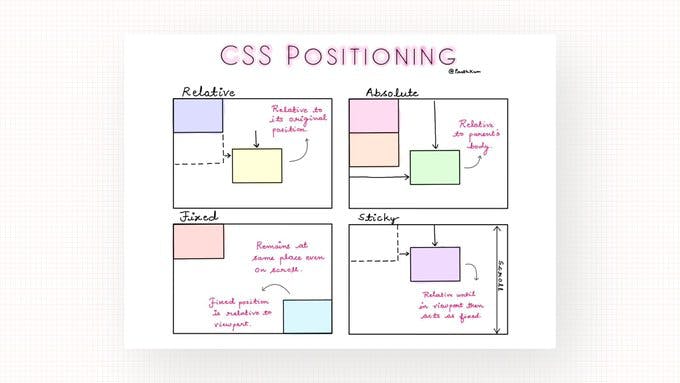 CSS POSITIONING
Relative
Relative to
its original
position
Absolute
Relative
to parent's
body.
Fixed
Remains at
same place even
on scroll.
Fixed position
is relative to
viewport.
Sticky
Scroll
Relative until
in viewport then
acts as fixed